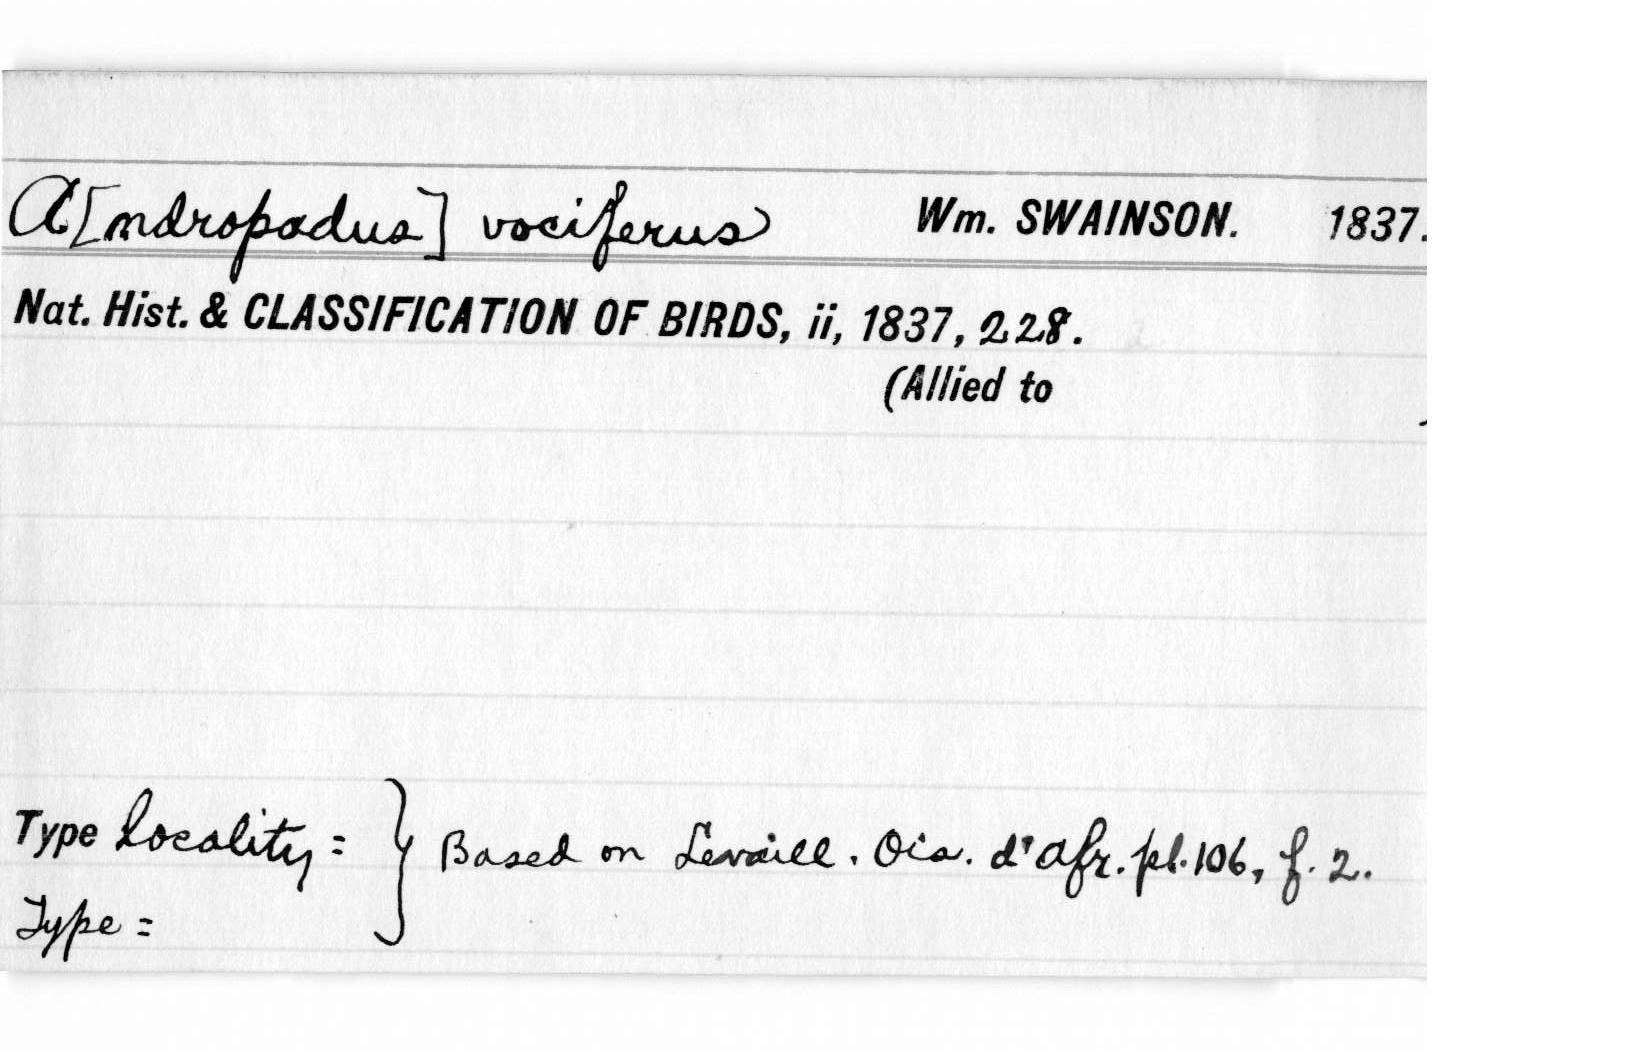 A[ndropadus] vociferus Wm. SWAINSON. 1837.
Nat. Hist. & CLASSIFICATION OF BIRDS, ii, 1837, 228.
(Allied to )
Type locality = } Based on Levaill. Ois. d'Afr. pl. 106, f. 2.
Type =